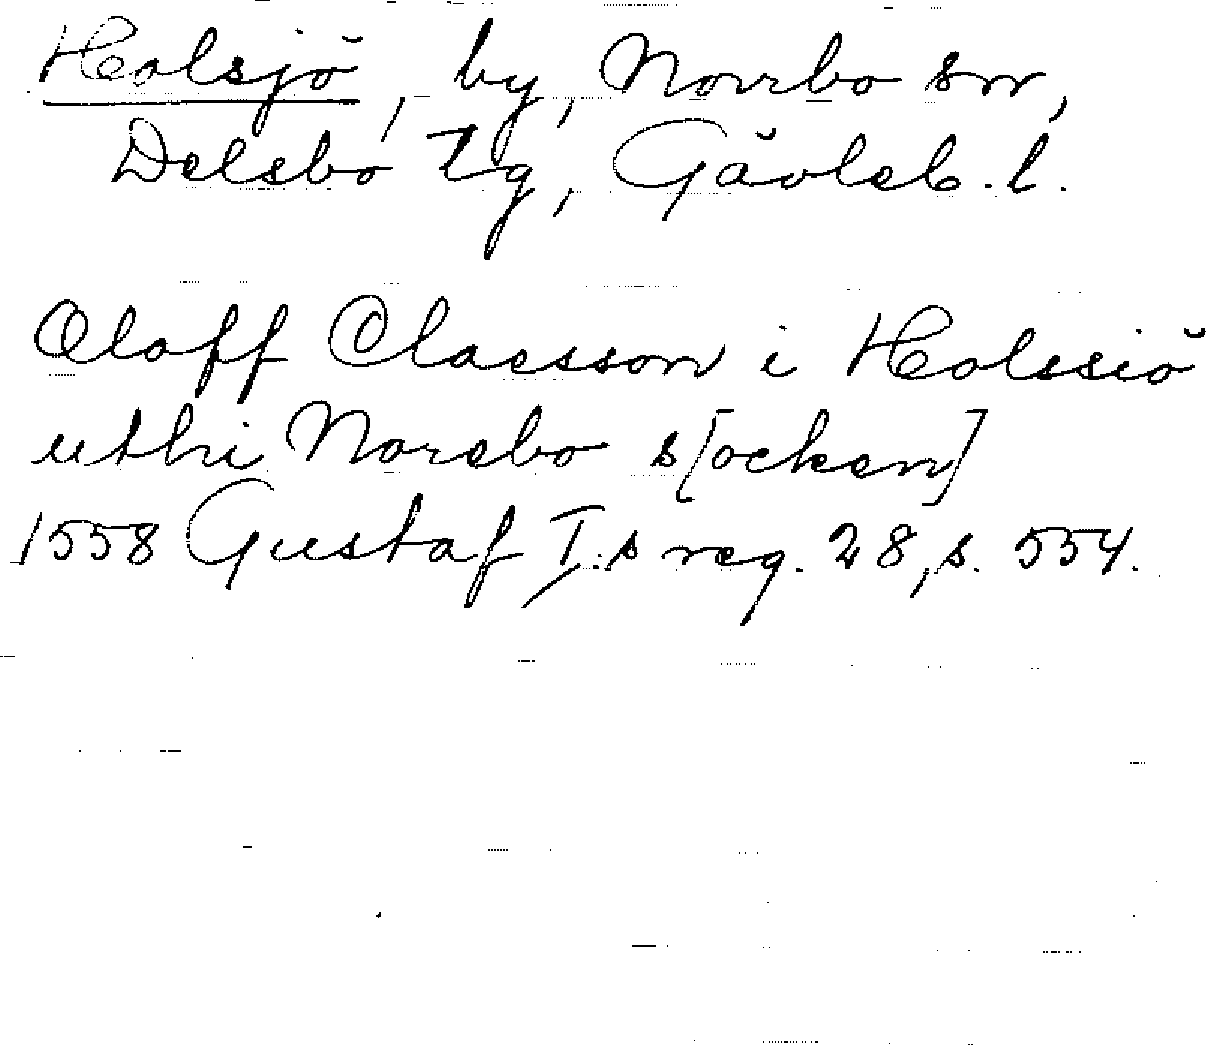 Holsjö, by, Norrbo sn,
Delsbo tg, Gävleb. l.
Oloff Olaesson i Holssiö
uthi Norebo s[ocken]
1558 Gustaf I:s reg. 28, s. 554.